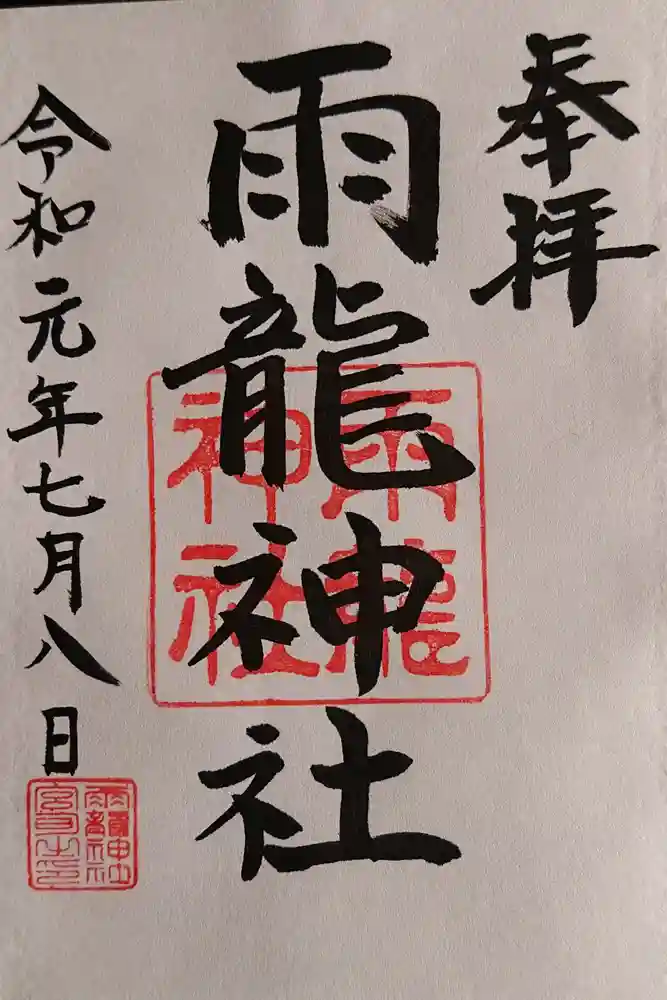 奉拝
雨龍神社
雨龍神社
令和元年七月八日
雨龍神社宮司之印